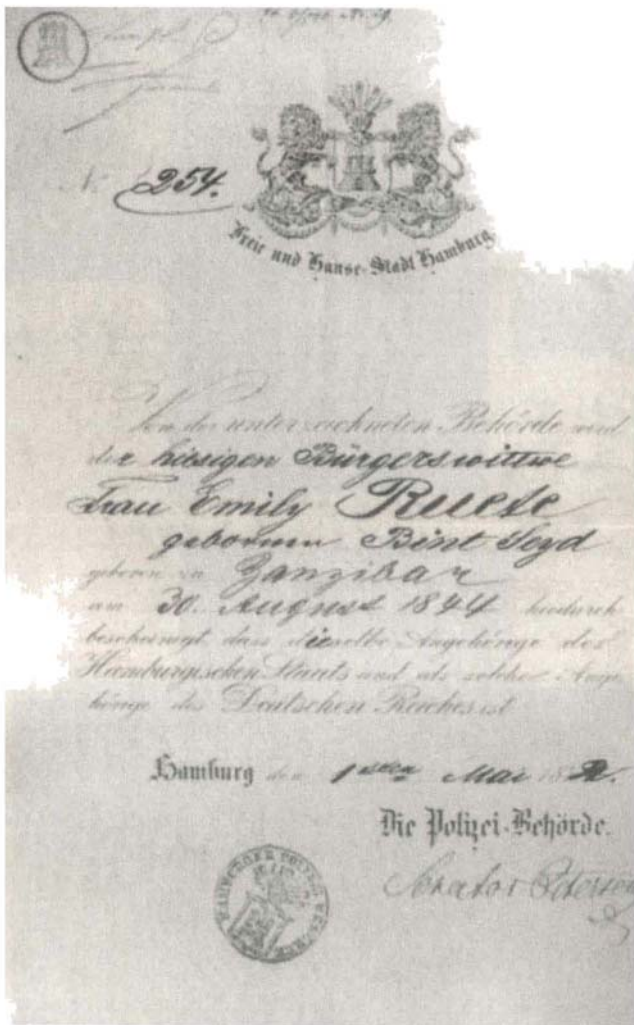 No 254.
Freie und Hanse-Stadt Hamburg
Von der unterzeichneten Behörde wird
der hiesigen Bürgerswittwe
Frau Emily Ruete
geborenen Bint Seyd
geboren zu Zanzibar
am 30. August 1844 hiedurch
bescheinigt dass dieselbe Angehörige des
Hamburgischen Staats und als solche Ange
hörige des Deutschen Reiches ist
Hamburg den 1sten Mai 18
Die Polizei-Behörde.
Senator Petersen
HAMBURGER POLIZEI